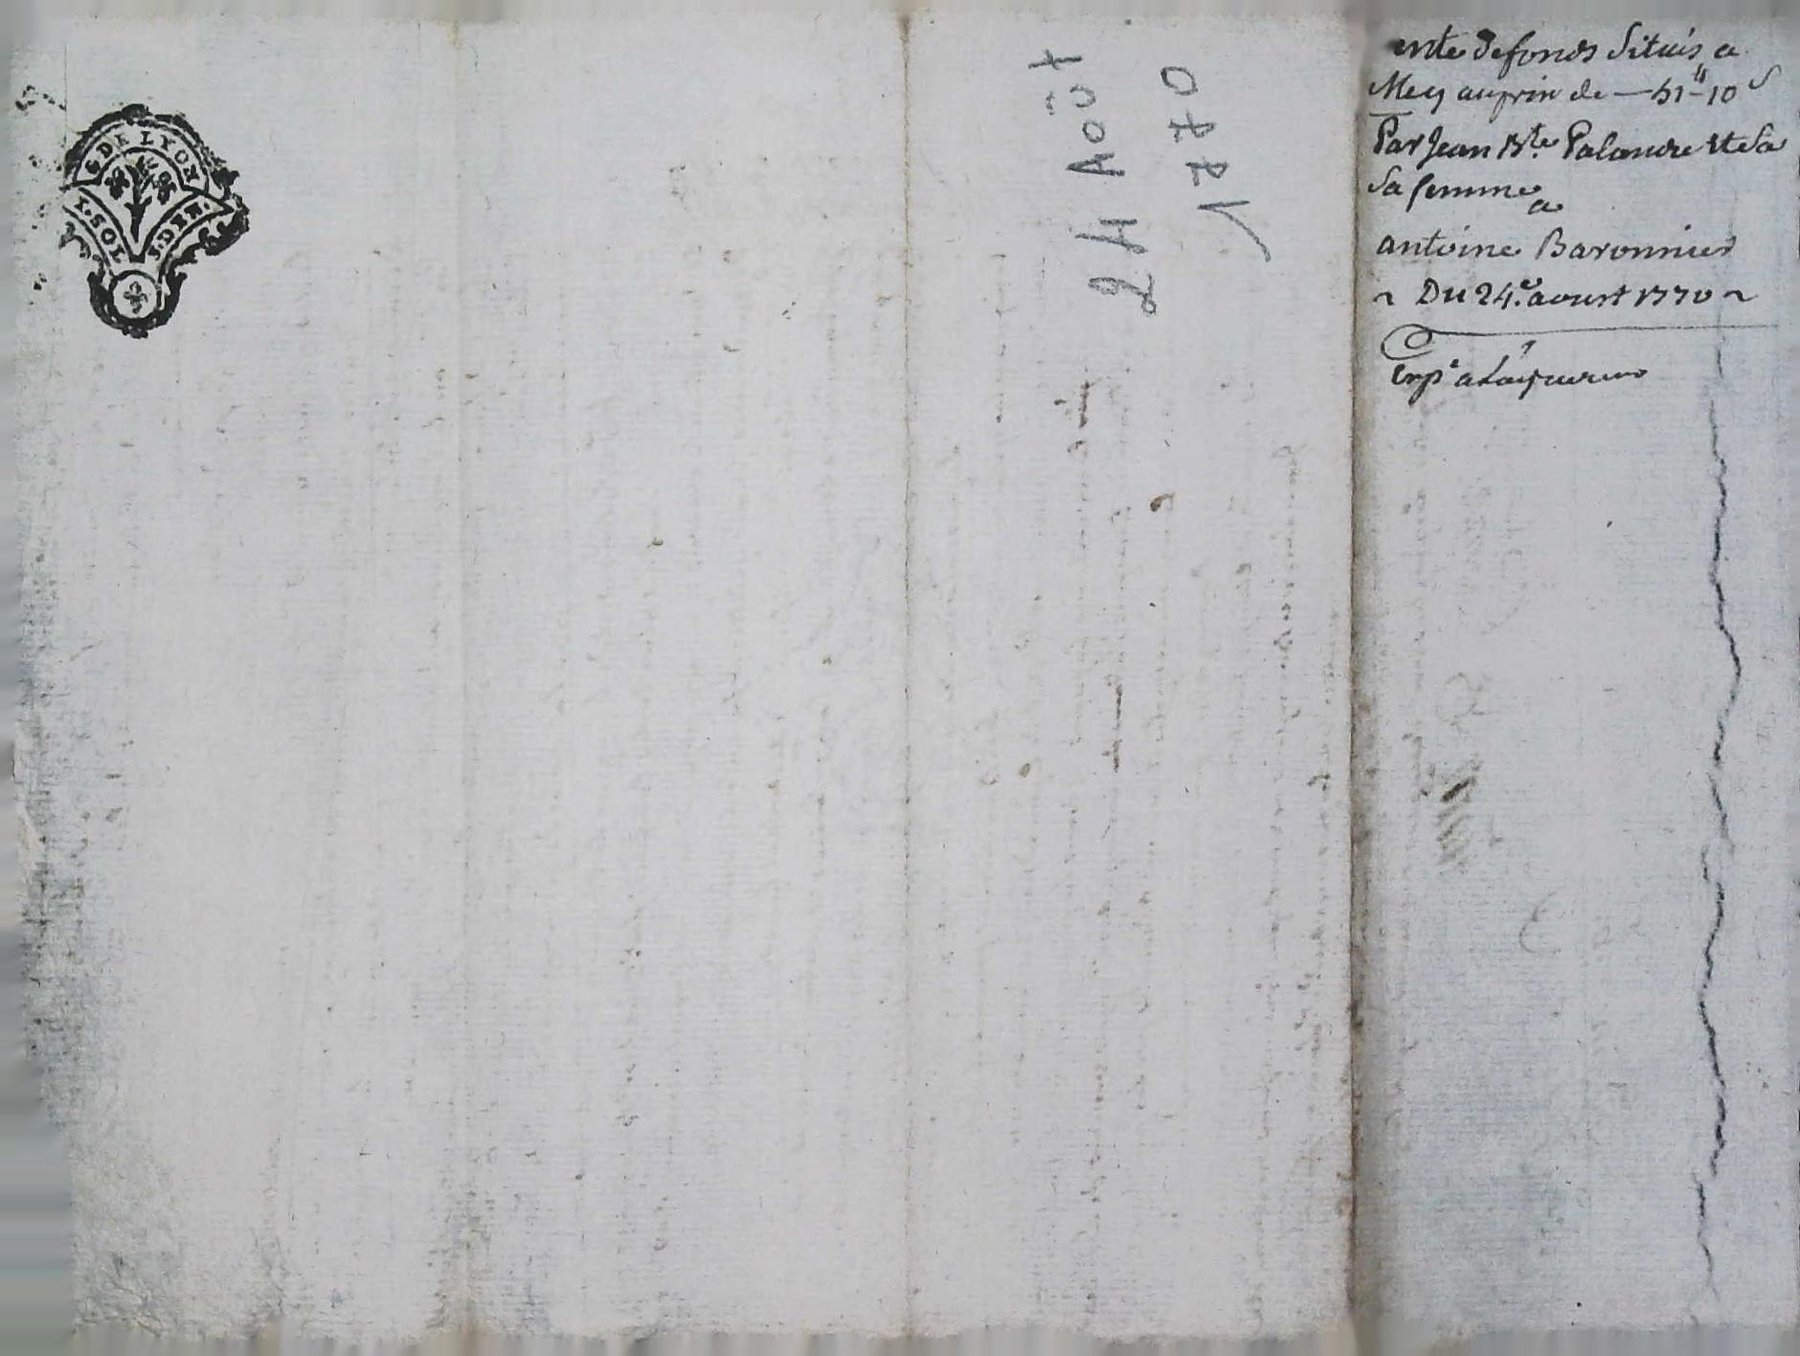 G. DE LYON
I. SOL
REGS.
24 AOÛT
1770
ente de fonds Situés a
Mey au prix de — 51ᴴ-10ˢ
Par Jean Bte. Palandre et Sa
Sa femme
a
antoine Baronnier
~ Du 24.e aoust 1770 ~
Exp.e a